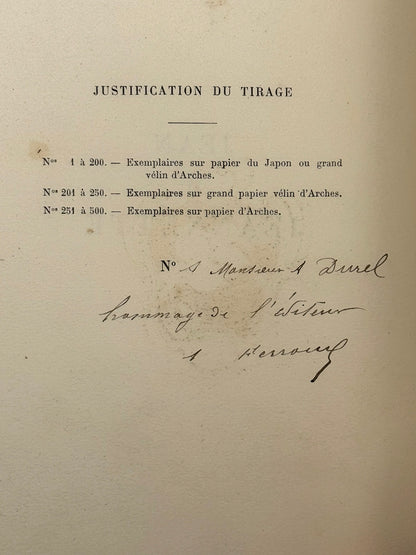 JUSTIFICATION DU TIRAGE
Nos 1 à 200. — Exemplaires sur papier du Japon ou grand
vélin d'Arches.
Nos 201 à 250. — Exemplaires sur grand papier vélin d'Arches.
Nos 251 à 500. — Exemplaires sur papier d'Arches.
No Monsieur A Durel
hommage de l'éditeur
A Ferroud